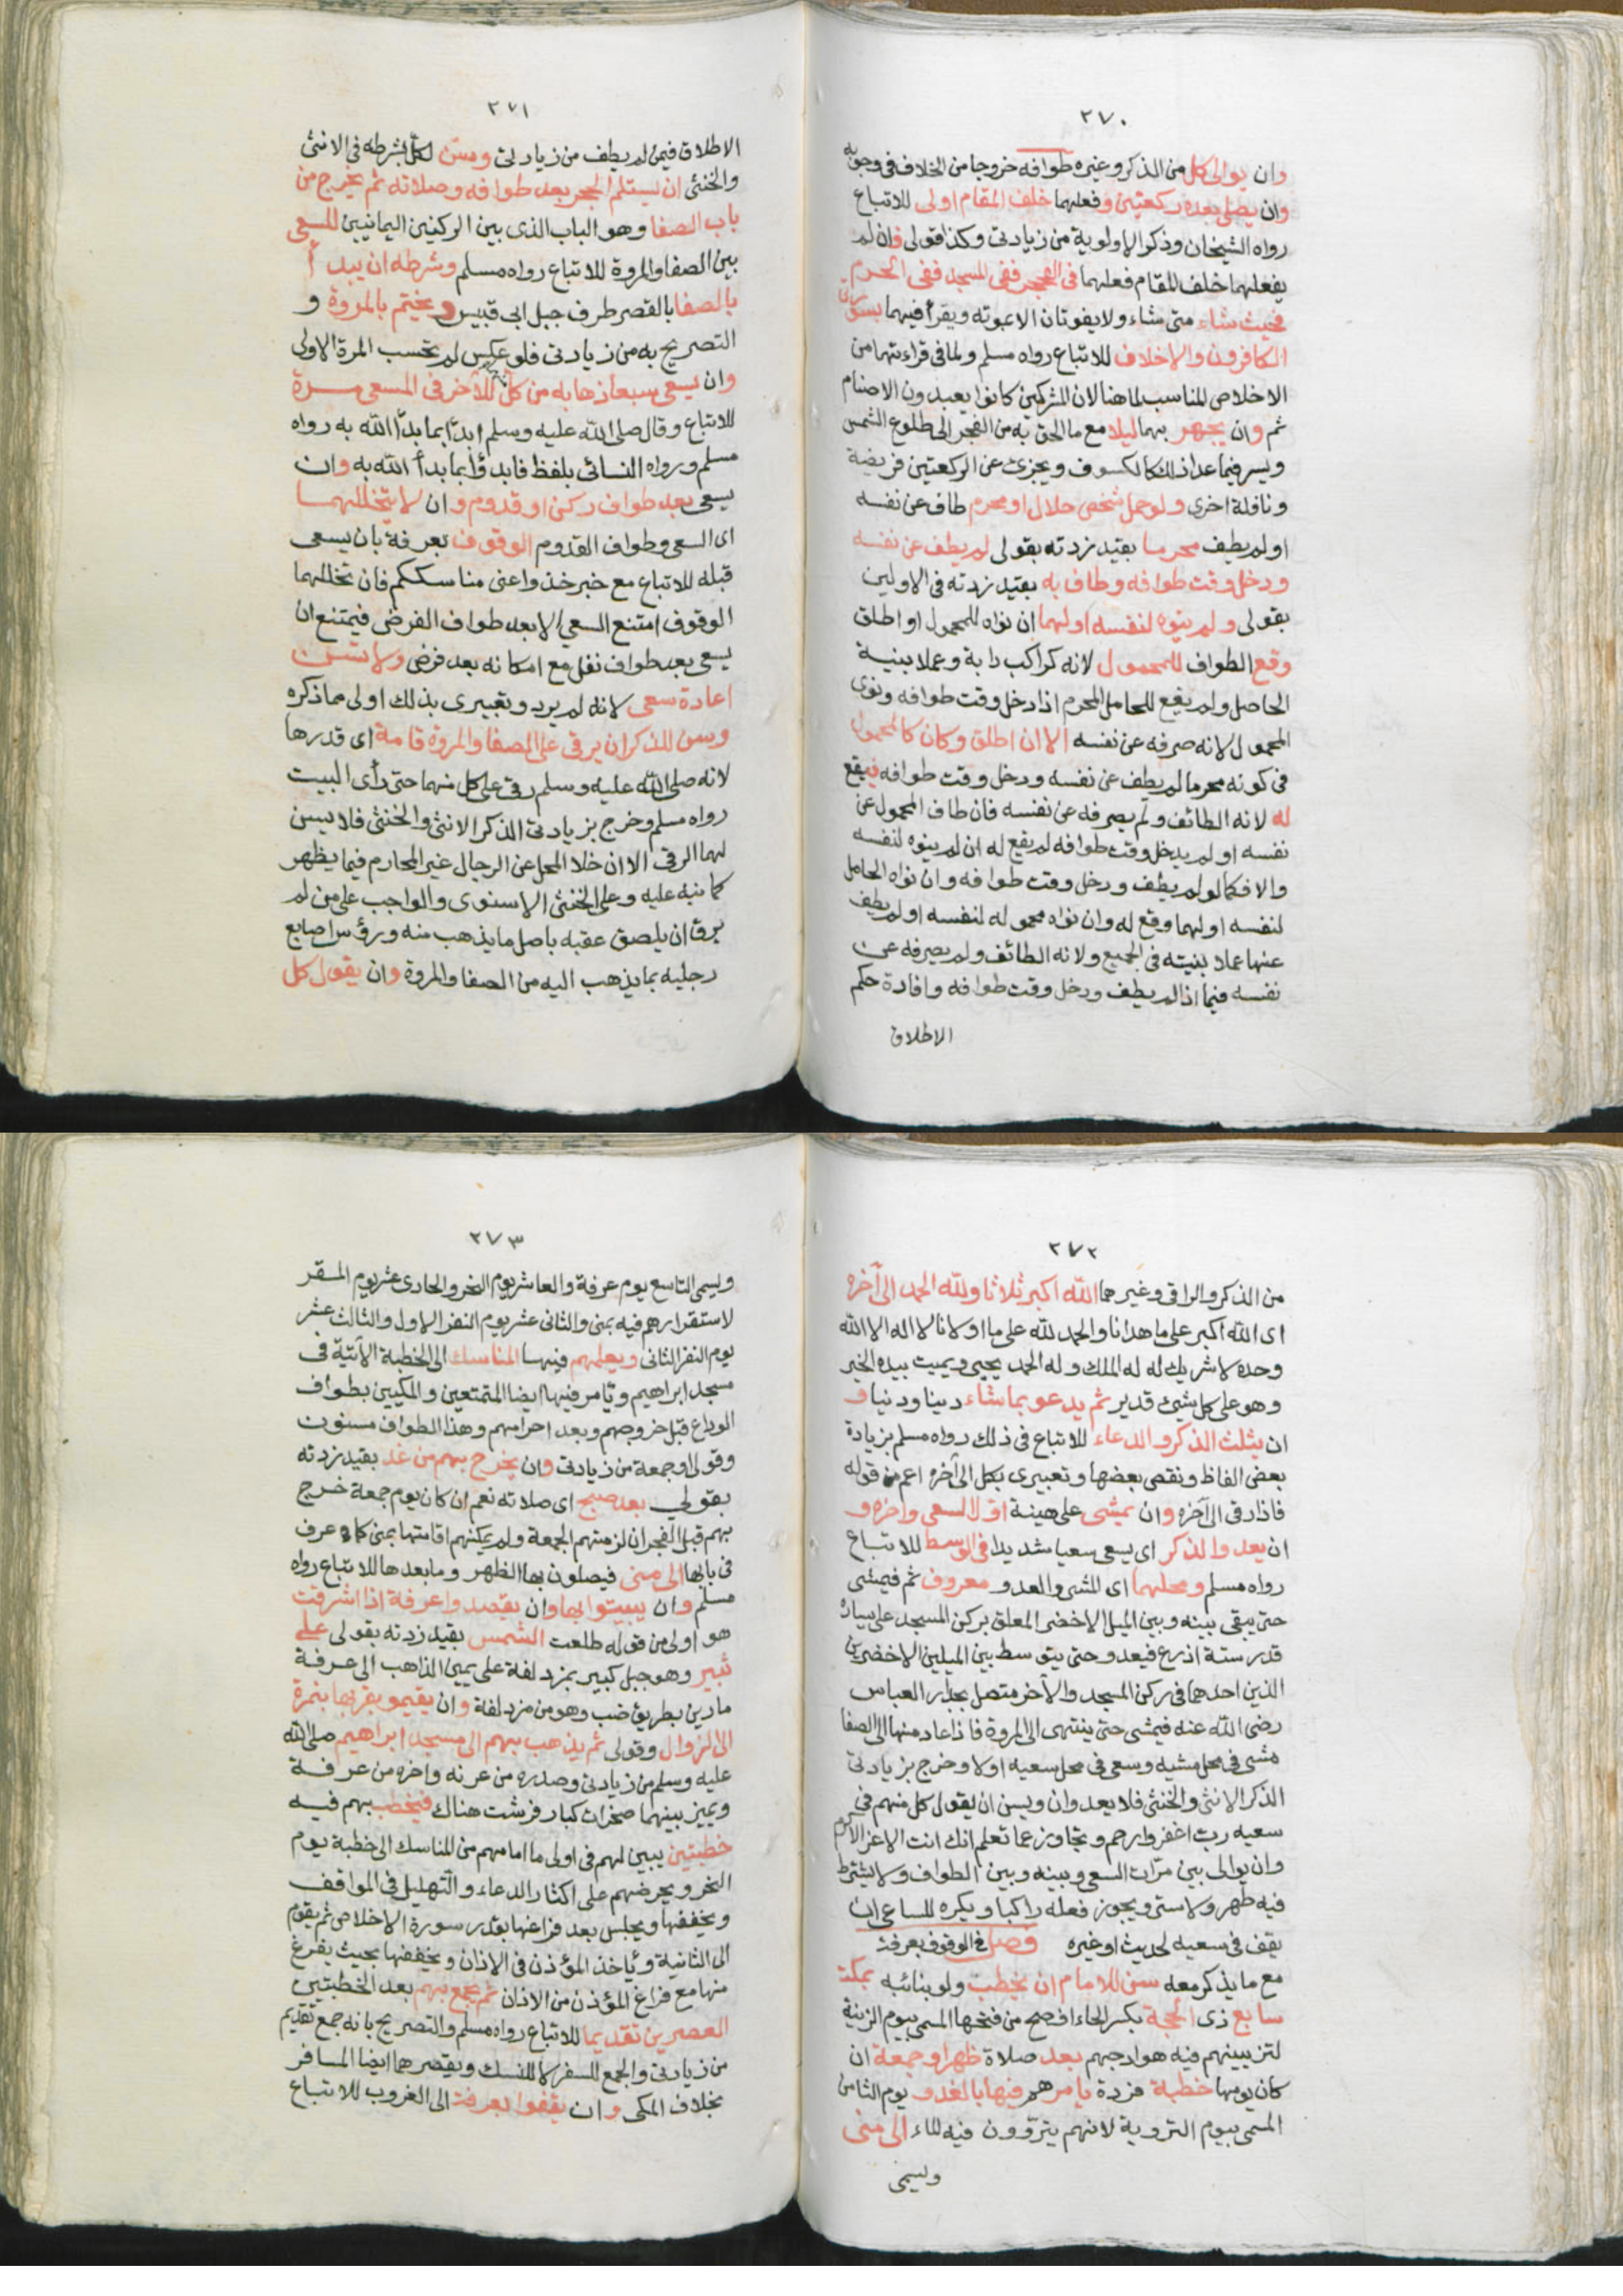 ٢٧٠
وان يوالى كل من الذكر وغيره طوافه خروجا من الخلاف فى وجوبه
وان يصلى بعده ركعتين وفعلهما خلف المقام اولى للاتباع
رواه الشيخان وذكر الاولوية من زيادتى وكذا قولى فان لم
يفعلهما خلف المقام فعلهما فى الحجر ففى المسجد ففى الحرم
فحيث شاء متى شاء ولا يفوتان الا بموته ويقرأ فيهما بسورتى
الكافرون والاخلاص للاتباع رواه مسلم ولما فى قراءتهما من
الاخلاص المناسب لما هنا لان المشركين كانوا يعبدون الاصنام
ثم وان يجهر بهما ليلا مع ما الحق به من الفجر الى طلوع الشمس
ويسر فيما عدا ذلك كالكسوف ويجزئ عن الركعتين فريضة
ونافلة اخرى ولو حمل شخص حلال او محرم طاف عن نفسه
او لم يطف محرما بقيد زدته بقولى لم يطف عن نفسه
ودخل وقت طوافه وطاف به بقيد زدته فى الاولين
بقولى ولم ينوه لنفسه او لهما ان نواه للمحمول او اطلق
وقع الطواف للمحمول لانه كراكب دابة وعملا بنية
الحامل ولم يقع للحامل المحرم اذا دخل وقت طوافه ونوى
المحمول لانه صرفه عن نفسه الا ان اطلق وكان كالمحمول
فى كونه محرما لم يطف عن نفسه ودخل وقت طوافه فيقع
له لانه الطائف ولم يصرفه عن نفسه فان طاف المحمول عن
نفسه او لم يدخل وقت طوافه لم يقع له ان لم ينوه لنفسه
والا فكما لو لم يطف ودخل وقت طوافه وان نواه الحامل
لنفسه او لهما وقع له وان نواه محموله لنفسه او لم يطف
عنها عملا بنيته فى الجميع ولانه الطائف ولم يصرفه عن
نفسه فيما اذا لم يطف ودخل وقت طوافه وافادة حكم
الاطلاق
٢٧١
الاطلاق فيمن لم يطف من زيادتى وسن لكل بشرطه فى الانثى
والخنثى ان يستلم الحجر بعد طوافه وصلاته ثم يخرج من
باب الصفا وهو الباب الذى بين الركنين اليمانيين للسعى
بين الصفا والمروة للاتباع رواه مسلم وشرطه ان يبدأ
بالصفا بالقصر طرف جبل ابى قبيس ويختم بالمروة و
التصريح به من زيادتى فلو عكس لم تحسب المرة الاولى
وان يسعى سبعا ذهابه من كل للآخر فى المسعى مرة
للاتباع وقال صلى الله عليه وسلم ابدأ بما بدأ الله به رواه
مسلم ورواه النسائى بلفظ فابدؤا بما بدأ الله به وان
يسعى بعد طواف ركن او قدوم وان لا يتخللهما
اى السعى وطواف القدوم الوقوف بعرفة بان يسعى
قبله للاتباع مع خبر خذوا عنى مناسككم فان تخللهما
الوقوف امتنع السعى الا بعد طواف الفرض فيمتنع ان
يسعى بعد طواف نفل مع امكانه بعد فرض ولا تسن
اعادة سعى لانه لم يرد وتعبيرى بذلك اولى مما ذكره
وسن للذكر ان يرقى على الصفا والمروة قامة اى قدرها
لانه صلى الله عليه وسلم رقى على كل منهما حتى رأى البيت
رواه مسلم وخرج بزيادتى الذكر الانثى والخنثى فلا يسن
لهما الرقى الا ان خلا المحل عن الرجال غير المحارم فيما يظهر
كما نبه عليه وعلى الخنثى الاسنوى والواجب على من لم
يرق ان يلصق عقبه باصل ما يذهب منه ورؤس اصابع
رجليه بما يذهب اليه من الصفا والمروة وان يقول كل
٢٧٢
من الذكر والراقى وغيرهما الله اكبر ثلاثا ولله الحمد الى آخره
اى الله اكبر على ما هدانا والحمد لله على ما اولانا لا اله الا الله
وحده لا شريك له له الملك وله الحمد يحيى ويميت بيده الخير
وهو على كل شيئ قدير ثم يدعو بما شاء دينا ودنيا و
ان يثلث الذكر والدعاء للاتباع فى ذلك رواه مسلم بزيادة
بعض الفاظ ونقص بعضها وتعبيرى بكل الى آخره اعم من قوله
فاذا رقى الى آخره وان يمشى على هينة اول السعى وآخره و
ان يعدو الذكر اى يسعى سعيا شديدا فى الوسط للاتباع
رواه مسلم ومحلهما اى المشى والعدو معروف ثم فيمشى
حتى يبقى بينه وبين الميل الاخضر المعلق بركن المسجد على يساره
قدر ستة اذرع فيعدو حتى يتوسط بين الميلين الاخضرين
الذين احدهما فى ركن المسجد والآخر متصل بجدار العباس
رضى الله عنه فيمشى حتى ينتهى الى المروة فاذا عاد منها الى الصفا
مشى فى محل مشيه وسعى فى محل سعيه اولا وخرج بزيادتى
الذكر الانثى والخنثى فلا يعدوان ويسن ان يقول كل منهم فى
سعيه رب اغفر وارحم وتجاوز عما تعلم انك انت الاعز الاكرم
وان يوالى بين مرات السعى وبينه وبين الطواف ولا يشترط
فيه طهر ولا ستر ويجوز فعله راكبا ويكره للساعى ان
يقف فى سعيه لحديث او غيره فصل فى الوقوف بعرفة
مع ما يذكر معه سن للامام ان يخطب ولو بنائبه بمكة
سابع ذى الحجة بكسر الحاء افصح من فتحها المسمى بيوم الزينة
لتزيينهم فيه هوادجهم بعد صلاة ظهر او جمعة ان
كان يومها خطبة فردة يامرهم فيها بالغدو يوم الثامن
المسمى بيوم التروية لانهم يتروون فيه الماء الى منى
ويسمى
٢٧٣
ويسمى التاسع يوم عرفة والعاشر يوم النحر والحادى عشر يوم المقر
لاستقرارهم فيه بمنى والثانى عشر يوم النفر الاول والثالث عشر
يوم النفر الثانى ويعلمهم فيها المناسك الى الخطبة الآتية فى
مسجد ابراهيم ويامر فيها ايضا المتمتعين والمكيين بطواف
الوداع قبل خروجهم وبعد احرامهم وهذا الطواف مسنون
وقولى او جمعة من زيادتى وان يخرج بهم من غد بقيد زدته
بقولى بعد صبح اى صلاته نعم ان كان يوم جمعة خرج
بهم قبل الفجر ان لزمتهم الجمعة ولم يمكنهم اقامتها بمنى كما عرف
فى بابها الى منى فيصلون بها الظهر وما بعدها للاتباع رواه
مسلم وان يبيتوا بها وان يقصدوا عرفة اذا اشرقت
هو اولى من قوله طلعت الشمس بقيد زدته بقولى على
ثبير وهو جبل كبير بمزدلفة على يمين الذاهب الى عرفة
مارين بطريق ضب وهو من مزدلفة وان يقيمو بقربها بنمرة
الى الزوال وقولى ثم يذهب بهم الى مسجد ابراهيم صلى الله
عليه وسلم من زيادتى وصدره من عرنه وآخره من عرفة
ويميز بينهما صخرات كبار فرشت هناك فيخطب بهم فيه
خطبتين يبين لهم فى اولى ما امامهم من المناسك الى خطبة يوم
النحر ويحرضهم على اكثار الدعاء والتهليل فى المواقف
ويخففها ويجلس بعد فراغها بقدر سورة الاخلاص ثم يقوم
الى الثانية ويأخذ المؤذن فى الاذان ويخففها بحيث يفرغ
منها مع فراغ المؤذن من الاذان ثم يجمع بهم بعد الخطبتين
العصرين تقديما للاتباع رواه مسلم والتصريح بانه جمع تقديم
من زيادتى والجمع للسفر لا للنسك ويقصرهما ايضا المسافر
بخلاف المكى وان يقفوا بعرفة الى الغروب للاتباع